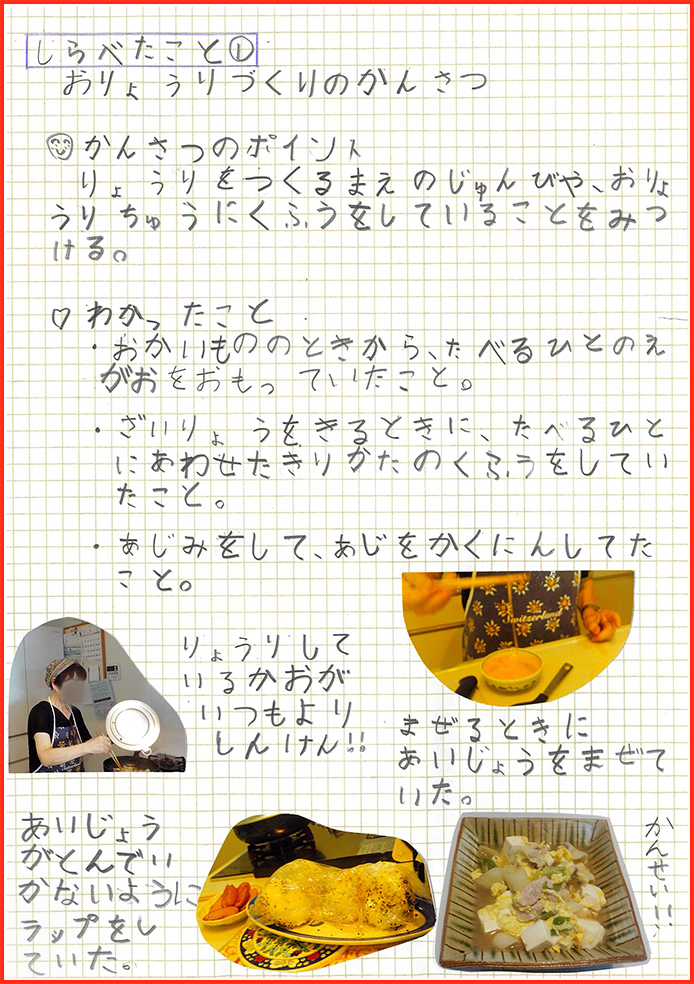 しらべたこと①
おりょうりづくりのかんさつ
かんさつのポイント
りょうりをつくるまえのじゅんびや、おりょ
うりちゅうにくふうをしていることをみつ
ける。
♡わかったこと
・おかいもののときから、たべるひとのえ
がおをおもっていたこと。
・ざいりょうをきるときに、たべるひと
にあわせたきりかたのくふうをしてい
たこと。
・あじみをして、あじをかくにんしてた
こと。
りょうりして
いるかおが
いつもより
しんけん!!
Switzerland
まぜるときに
あいじょうをまぜて
いた。
あいじょう
がとんでい
かないように
ラップをし
ていた。
かんせい!!